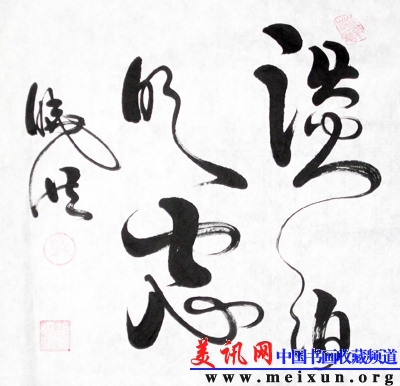 淡泊
明志
美讯网 中国书画收藏频道
www.meixun.org